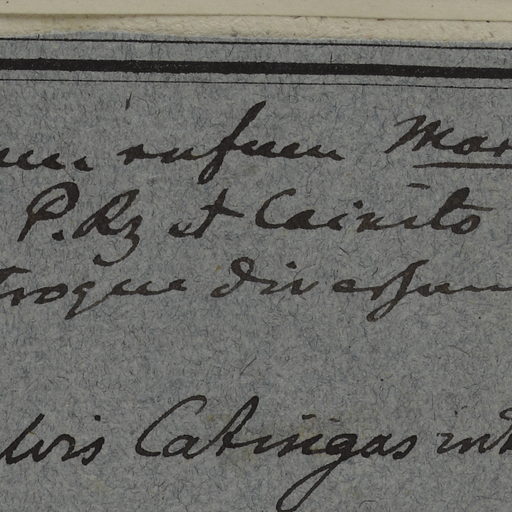 rufum Mar
P. Rz et Cainito
troque diversum
lvis Catingas int